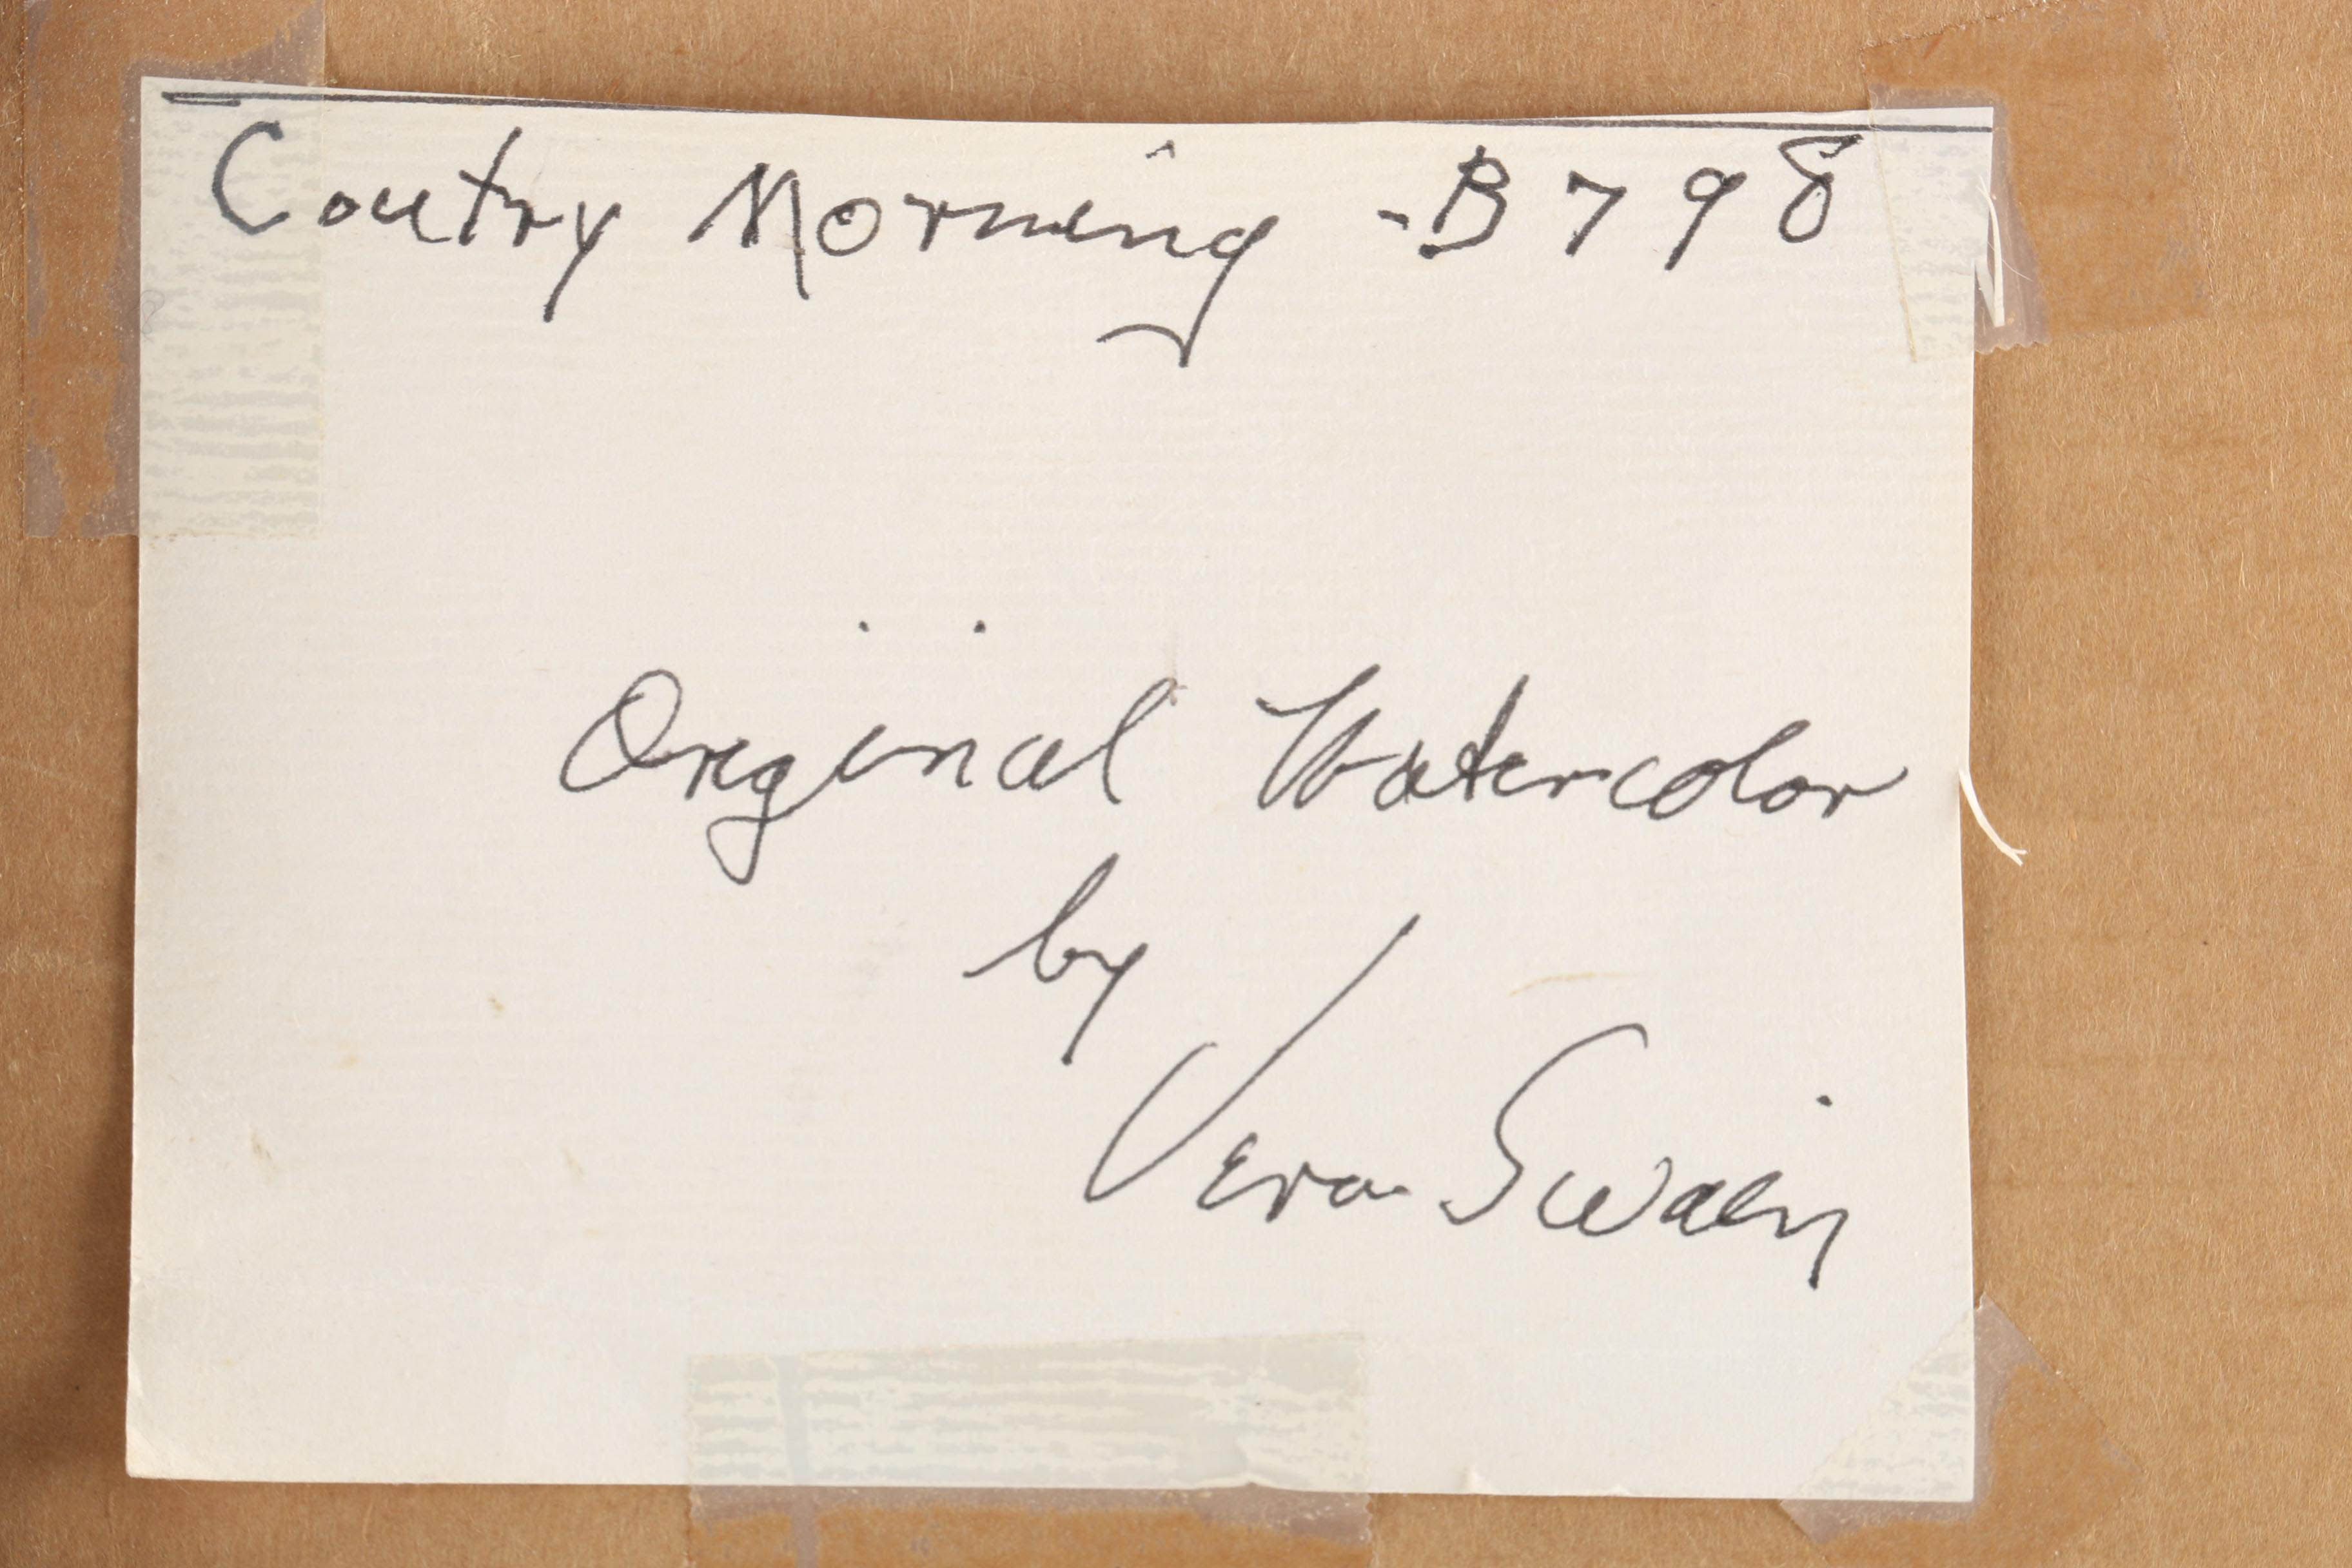 Coutry Morning - B798
Original Watercolor
by
Vera Swain